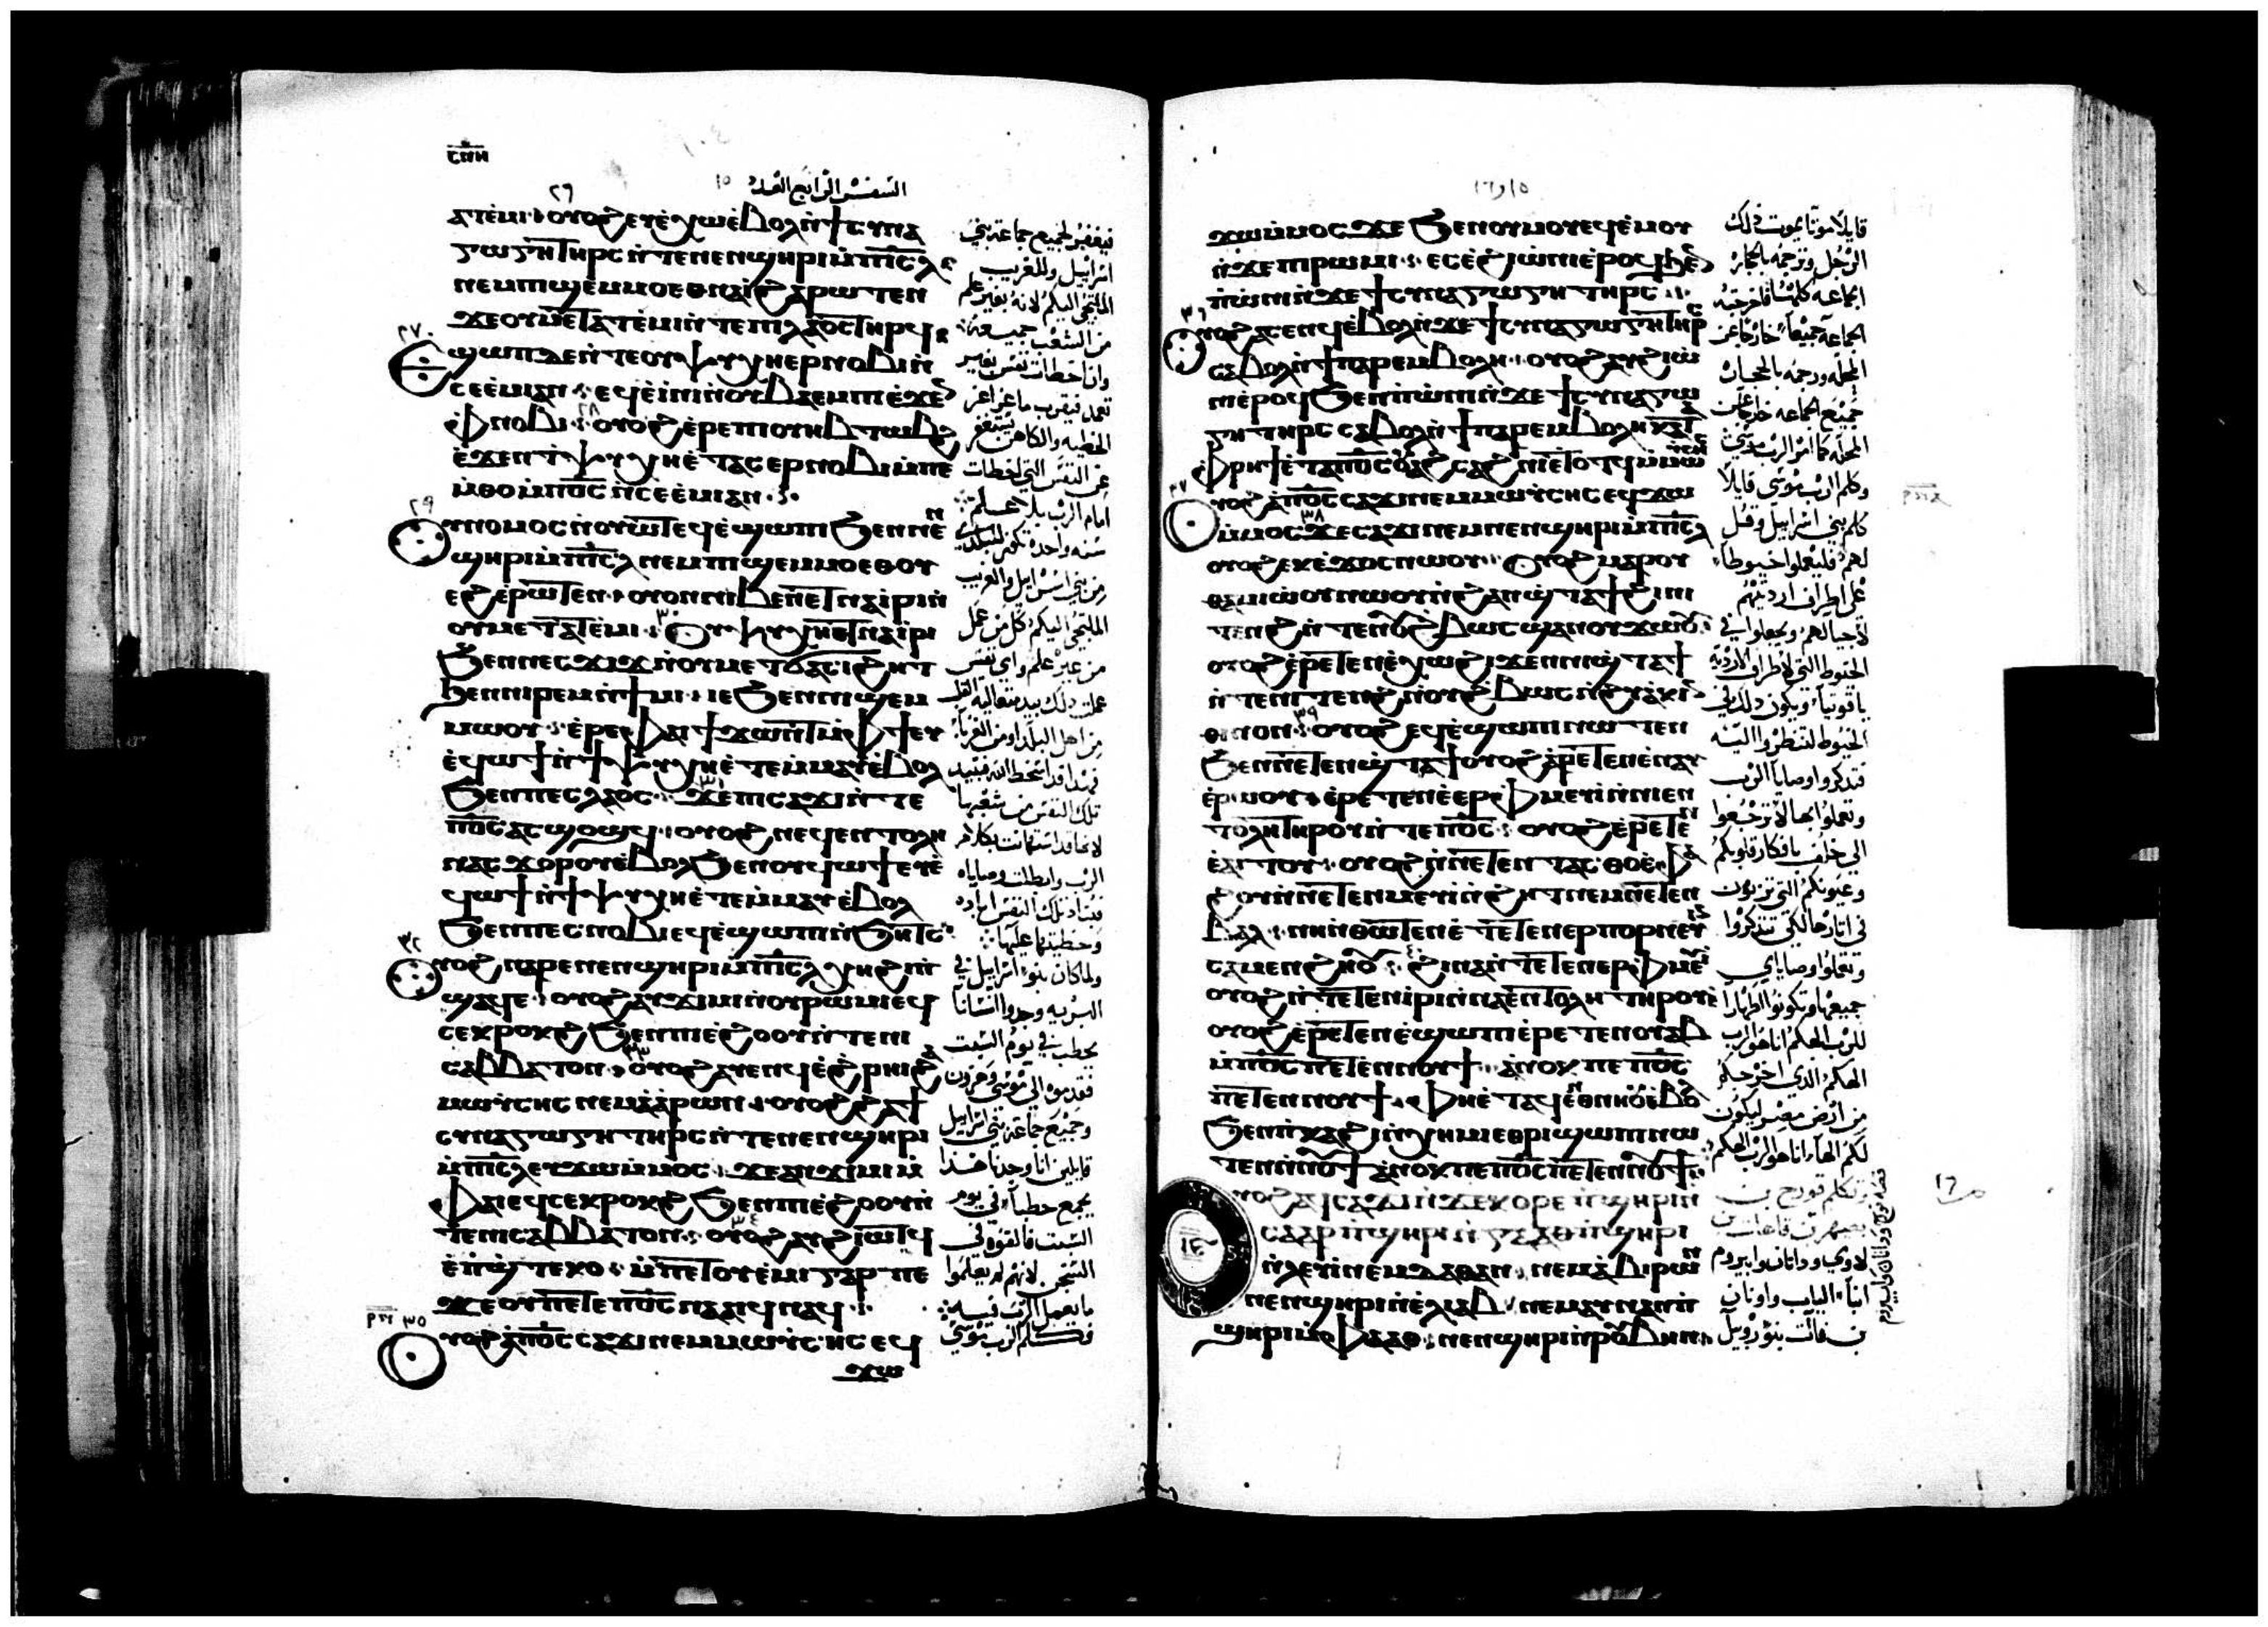 ⲥⲡⲏ
السفر الرابع العدد
١٥
٢٦
ⲁⲧⲉⲙⲓ ⲟⲩⲟϩ ⲉⲩⲉⲭⲱ ⲉⲃⲟⲗ ⲛϯⲥⲩⲛⲁ
ⲅⲱⲅⲏ ⲧⲏⲣⲥ ⲛⲧⲉ ⲛⲉⲛϣⲏⲣⲓ ⲙⲡⲓⲥⲗ
ⲛⲉⲙ ⲡⲓϣⲉⲙⲙⲟ ⲉⲑⲛⲁⲓ ϩⲁⲣⲱⲧⲉⲛ
ϫⲉ ⲟⲩⲙⲉⲧⲁⲧⲉⲙⲓ ⲛⲧⲉ ⲡⲓⲗⲁⲟⲥ ⲧⲏⲣϥ
٢٧
ϣⲱⲡ ⲇⲉ ⲛⲧⲉ ⲟⲩⲯⲩⲭⲏ ⲉⲣⲛⲟⲃⲓ ⲛ
ⲥⲉⲉⲙⲓ ⲁⲛ ⲉϥⲉⲓⲛⲓ ⲛⲟⲩⲃⲁⲉⲙⲡⲓ ⲉϫⲉ
ⲫⲛⲟⲃⲓ ٢٨ ⲟⲩⲟϩ ⲉⲣⲉ ⲡⲓⲟⲩⲏⲃ ⲧⲱⲃϩ
ⲉϫⲉⲛ ϯⲯⲩⲭⲏ ⲉⲧⲁⲥⲉⲣⲛⲟⲃⲓ ⲙⲡⲉ
ⲙⲑⲟ ⲙⲡⲟⲥ ⲛⲥⲉⲉⲙⲓ ⲁⲛ
٢٩
ⲩⲛⲟⲙⲟⲥ ⲛⲟⲩⲱⲧ ⲉϥⲉϣⲱⲡⲓ ϧⲉⲛ ⲛⲉⲛ
ϣⲏⲣⲓ ⲙⲡⲓⲥⲗ ⲛⲉⲙ ⲡⲓϣⲉⲙⲙⲟ ⲉⲑⲟⲩ
ⲉϩ ⲉⲣⲱⲧⲉⲛ ⲟⲩⲟⲛ ⲛⲓⲃⲉⲛ ⲉⲧⲛⲁⲓⲣⲓ ⲛ
ⲟⲩⲙⲉⲧⲁⲧⲉⲙⲓ ٣٠ ⲟⲩⲯⲩⲭⲏ ⲉⲧⲛⲁⲓⲣⲓ
ϧⲉⲛ ⲛⲉⲥϫⲓϫ ⲛⲟⲩⲙⲉⲧϭⲁⲥⲓϩⲏⲧ
ϧⲉⲛ ⲛⲓⲣⲉⲙⲛϯⲙⲓ ⲓⲉ ϧⲉⲛ ⲛⲓϣⲉⲙ
ⲙⲱⲟⲩ ⲉⲣⲉ ⲫⲁⲓ ϯϫⲱⲛⲧ ⲙⲫϯ ⲉⲩ
ⲉϥⲱϯ ⲛϯⲯⲩⲭⲏ ⲉⲧⲉⲙⲙⲁⲩ ⲉⲃⲟⲗ
ϧⲉⲛ ⲡⲉⲥⲗⲁⲟⲥ ٣١ ϫⲉ ⲡⲥⲁϫⲓ ⲛⲧⲉ
ⲡⲟⲥ ⲁⲥϣⲟϣϥ ⲟⲩⲟϩ ⲛⲉϥⲉⲛⲧⲟⲗⲏ
ⲛⲁⲥϫⲟⲣⲟⲩ ⲉⲃⲟⲗ ϧⲉⲛ ⲟⲩϥⲱϯ ⲉⲩⲉ
ϥⲱϯ ⲛϯⲯⲩⲭⲏ ⲉⲧⲉⲙⲙⲁⲩ ⲉⲃⲟⲗ
ϧⲉⲛ ⲡⲉⲥⲛⲟⲃⲓ ⲉϥⲉϣⲱⲡⲓ ⲛϧⲏⲧⲥ
٣٢
ⲩⲟϩ ⲛⲁⲣⲉ ⲛⲉⲛϣⲏⲣⲓ ⲙⲡⲓⲥⲗ ⲭⲏ ϩⲓ ⲡ
ϣⲁϥⲉ ⲟⲩⲟϩ ⲁⲩϫⲓⲙⲓ ⲛⲟⲩⲣⲱⲙⲓ ⲉϥ
ⲥⲉⲕⲣⲟⲕϩ ϧⲉⲛ ⲡⲓⲉϩⲟⲟⲩ ⲛⲧⲉ ⲛⲓ
ⲥⲁⲃⲃⲁⲧⲟⲛ ٣٣ ⲟⲩⲟϩ ⲁⲩⲉⲛϥ ⲉϩⲣⲏⲓ ϩⲁ
ⲙⲱⲩⲥⲏⲥ ⲛⲉⲙ ⲁⲁⲣⲱⲛ ⲟⲩⲟϩ ϩⲁ ϯ
ⲥⲩⲛⲁⲅⲱⲅⲏ ⲧⲏⲣⲥ ⲛⲧⲉ ⲛⲉⲛϣⲏⲣⲓ
ⲙⲡⲓⲥⲗ ⲉⲩϫⲱ ⲙⲙⲟⲥ ϫⲉ ⲁⲛϫⲓⲙⲓ ⲙ
ⲫⲁⲓ ⲉϥⲥⲉⲕⲣⲟⲕϩ ϧⲉⲛ ⲡⲓⲉϩⲟⲟⲩ ⲛ
ⲧⲉ ⲛⲓⲥⲁⲃⲃⲁⲧⲟⲛ ٣٤ ⲟⲩⲟϩ ⲁⲩϩⲓⲧϥ
ⲉⲡϣⲧⲉⲕⲟ ⲙⲡⲉⲧⲟⲩⲉⲙⲓ ⲅⲁⲣ ⲡⲉ
ϫⲉ ⲟⲩ ⲡⲉⲧⲉ ⲡⲟⲥ ⲛⲁⲁⲓϥ ⲛⲁϥ
٣٥
ⲩⲟϩ ⲁ ⲡⲟⲥ ⲥⲁϫⲓ ⲛⲉⲙ ⲙⲱⲩⲥⲏⲥ ⲉϥ
ϫⲱ
فيغفر لجميع جماعة بني
اسراييل وللغريب
الملتجي اليكم لانه بغير علم
من الشعب جميعه
وان اخطات نفس بغير
تعمد فتقرب ماعز عن
الخطيه والكاهن يستغفر
عن النفس التي اخطات
امام الرب بلا علم
سنه واحده تكون
من بني اسراييل والغريب
الملتجي اليكم كل من عمل
من غير علم واي نفس
عملت ذلك بيد متعاليه القلب
من اهل البلد او من الغربا
فهذا قد اسخط الله فتبيد
تلك النفس من شعبها
لانها قد استهانت بكلام
الرب وابطلت وصاياه
فتباد تلك النفس اباده
وخطيتها عليها
ولما كان بنو اسراييل في
البريه وجدوا انسانا
يحطب في يوم السبت
فقدموه الى موسى وهرون
وجميع جماعة بني اسراييل
قايلين انا وجدنا هذا
يجمع حطبا في يوم
السبت فالقوه في
السجن لانهم لم يعلموا
ما يعمل الرب فيه
فكلم الرب موسى
١٥ و١٦
ϫⲱ ⲙⲙⲟⲥ ϫⲉ ϧⲉⲛ ⲟⲩⲙⲟⲩ ⲉϥⲉⲙⲟⲩ
ⲛϫⲉ ⲡⲓⲣⲱⲙⲓ ⲉⲥⲉϩⲓⲱⲛⲓ ⲉⲣⲟϥ ϧⲉⲛ
ⲡⲱⲛⲓ ⲛϫⲉ ϯⲥⲩⲛⲁⲅⲱⲅⲏ ⲧⲏⲣⲥ
٣٦
ⲩⲟϩ ⲁⲥⲉⲛϥ ⲉⲃⲟⲗ ⲛϫⲉ ϯⲥⲩⲛⲁⲅⲱⲅⲏ ⲧⲏⲣⲥ
ⲥⲁⲃⲟⲗ ⲛϯⲡⲁⲣⲉⲙⲃⲟⲗⲏ ⲟⲩⲟϩ ⲁⲩϩⲓⲱ
ⲛⲓ ⲉⲣⲟϥ ϧⲉⲛ ⲡⲱⲛⲓ ⲛϫⲉ ϯⲥⲩⲛⲁⲅⲱ
ⲅⲏ ⲧⲏⲣⲥ ⲥⲁⲃⲟⲗ ⲛϯⲡⲁⲣⲉⲙⲃⲟⲗⲏ ⲕⲁⲧⲁ
ⲫⲣⲏϯ ⲉⲧⲁ ⲡⲟⲥ ⲟⲩⲁϩⲥⲁϩⲛⲓ ⲉⲧⲟⲧϥ ⲙⲙⲱ
٣٧
ⲩⲟϩ ⲁ ⲡⲟⲥ ⲥⲁϫⲓ ⲛⲉⲙ ⲙⲱⲩⲥⲏⲥ ⲉϥϫⲱ
ⲙⲙⲟⲥ ٣٨ ϫⲉ ⲥⲁϫⲓ ⲛⲉⲙ ⲛⲉⲛϣⲏⲣⲓ ⲙⲡⲓⲥⲗ
ⲟⲩⲟϩ ⲉⲕⲉϫⲟⲥ ⲛⲱⲟⲩ ⲟⲩⲟϩ ⲙⲁⲣⲟⲩ
ⲑⲁⲙⲓⲱⲟⲩ ⲛⲱⲟⲩ ⲛϩⲁⲛϣⲧⲁϯ ϩⲓ ⲛⲓ
ⲧⲉⲛϩ ⲛⲧⲉ ⲛⲟⲩϩⲃⲱⲥ ϣⲁ ⲛⲟⲩϫⲱⲟⲩ
ⲟⲩⲟϩ ⲉⲣⲉⲧⲉⲛⲉⲭⲱ ϩⲓϫⲉⲛ ⲛⲓϣⲧⲁϯ
ⲛⲧⲉ ⲛⲓⲧⲉⲛϩ ⲛⲟⲩϩⲃⲱⲥ ⲛϩⲩⲁⲕⲓⲛ
ⲑⲓⲛⲟⲛ ٣٩ ⲟⲩⲟϩ ⲉϥⲉϣⲱⲡⲓ ⲛⲱⲧⲉⲛ
ϧⲉⲛ ⲛⲉⲧⲉⲛϣⲧⲁϯ ⲟⲩⲟϩ ⲉⲣⲉⲧⲉⲛⲉⲛⲁⲩ
ⲉⲣⲱⲟⲩ ⲉⲣⲉⲧⲉⲛⲉⲉⲣⲫⲙⲉⲩⲓ ⲛⲛⲓⲉⲛ
ⲧⲟⲗⲏ ⲧⲏⲣⲟⲩ ⲛⲧⲉ ⲡⲟⲥ ⲟⲩⲟϩ ⲉⲣⲉⲧⲉⲛ
ⲉⲁⲓⲧⲟⲩ ⲟⲩⲟϩ ⲛⲛⲉⲧⲉⲛⲧⲁⲥⲑⲟ ⲉⲫⲁ
ϩⲟⲩ ⲛⲛⲉⲧⲉⲛⲙⲉⲩⲓ ⲛϩⲏⲧ ⲛⲉⲙ ⲛⲉⲧⲉⲛ
ⲃⲁⲗ ⲛⲏ ⲛⲑⲱⲧⲉⲛ ⲉⲧⲉⲧⲉⲛⲉⲣⲡⲟⲣⲛⲉⲩⲓⲛ
ⲥⲁⲙⲉⲛϩⲏⲟⲩ ٤٠ ϩⲓⲛⲁ ⲛⲧⲉⲧⲉⲛⲉⲣⲫⲙⲉⲩⲓ
ⲟⲩⲟϩ ⲛⲧⲉⲧⲉⲛⲓⲣⲓ ⲛⲛⲁⲉⲛⲧⲟⲗⲏ ⲧⲏⲣⲟⲩ
ⲟⲩⲟϩ ⲉⲣⲉⲧⲉⲛⲉϣⲱⲡⲓ ⲉⲣⲉⲧⲉⲛⲟⲩⲁⲃ
ⲙⲡⲟⲥ ⲡⲉⲧⲉⲛⲛⲟⲩϯ ⲁⲛⲟⲕ ⲡⲉ ⲡⲟⲥ
ⲡⲉⲧⲉⲛⲛⲟⲩϯ ⲫⲏ ⲉⲧⲁϥⲉⲛⲑⲏⲛⲟⲩ ⲉⲃⲟⲗ
ϧⲉⲛ ⲡⲕⲁϩⲓ ⲛⲭⲏⲙⲓ ⲉⲑⲣⲓϣⲱⲡⲓ ⲛⲱ
ⲧⲉⲛ ⲛⲛⲟⲩϯ ⲁⲛⲟⲕ ⲡⲉ ⲡⲟⲥ ⲡⲉⲧⲉⲛⲛⲟⲩϯ
ⲩⲟϩ ⲁϥⲥⲁϫⲓ ⲛϫⲉ ⲕⲟⲣⲉ ⲡϣⲏⲣⲓ ⲛ
ⲥⲁⲁⲣ ⲡϣⲏⲣⲓ ⲛⲅⲁⲁⲑ ⲡϣⲏⲣⲓ
ⲛⲗⲉⲩⲓ ⲛⲉⲙ ⲇⲁⲑⲁⲛ ⲛⲉⲙ ⲁⲃⲓⲣⲱⲛ
ⲛⲉⲛϣⲏⲣⲓ ⲛⲉⲗⲓⲁⲃ ⲛⲉⲙ ⲁⲩⲛⲁⲛ ⲡ
ϣⲏⲣⲓ ⲙⲫⲁⲗⲉⲑ ⲛⲉⲛϣⲏⲣⲓ ⲛⲣⲟⲩⲃⲏⲛ
قايلا موتا يموت ذلك
الرجل وترجمه بالحجاره
الجماعه كلها فاخرجته
الجماعه جميعا خارجا عن
المحله ورجمه بالحجاره
جميع الجماعه خارجا عن
المحله كما امر الرب موسى
وكلم الرب موسى قايلا
كلم بني اسراييل وقل
لهم فليعملوا خيوطا
على اطراف ارديتهم
لاجيالهم ويجعلوا في
الخيوط التي لاطراف الارديه
ياقوتيا ويكون ذلك في
الخيوط لتنظروا اليه
فتذكروا وصايا الرب
وتعملوا بها لا ترجعوا
الى خلف بافكار قلوبكم
وعيونكم التي تزنون
في اثارها لكي تتذكروا
وتعملوا وصاياي
جميعها وتكونوا اطهارا
للرب الهكم انا هو الرب
الهكم الذي اخرجكم
من ارض مصر ليكون
لكم الها انا هو الرب الهكم
وتكلم قورح بن
يصهر بن قاهات بن
لاوي وداتان وابيروم
ابنا الياب واونان
بن فالت بنو روبيل
١٦